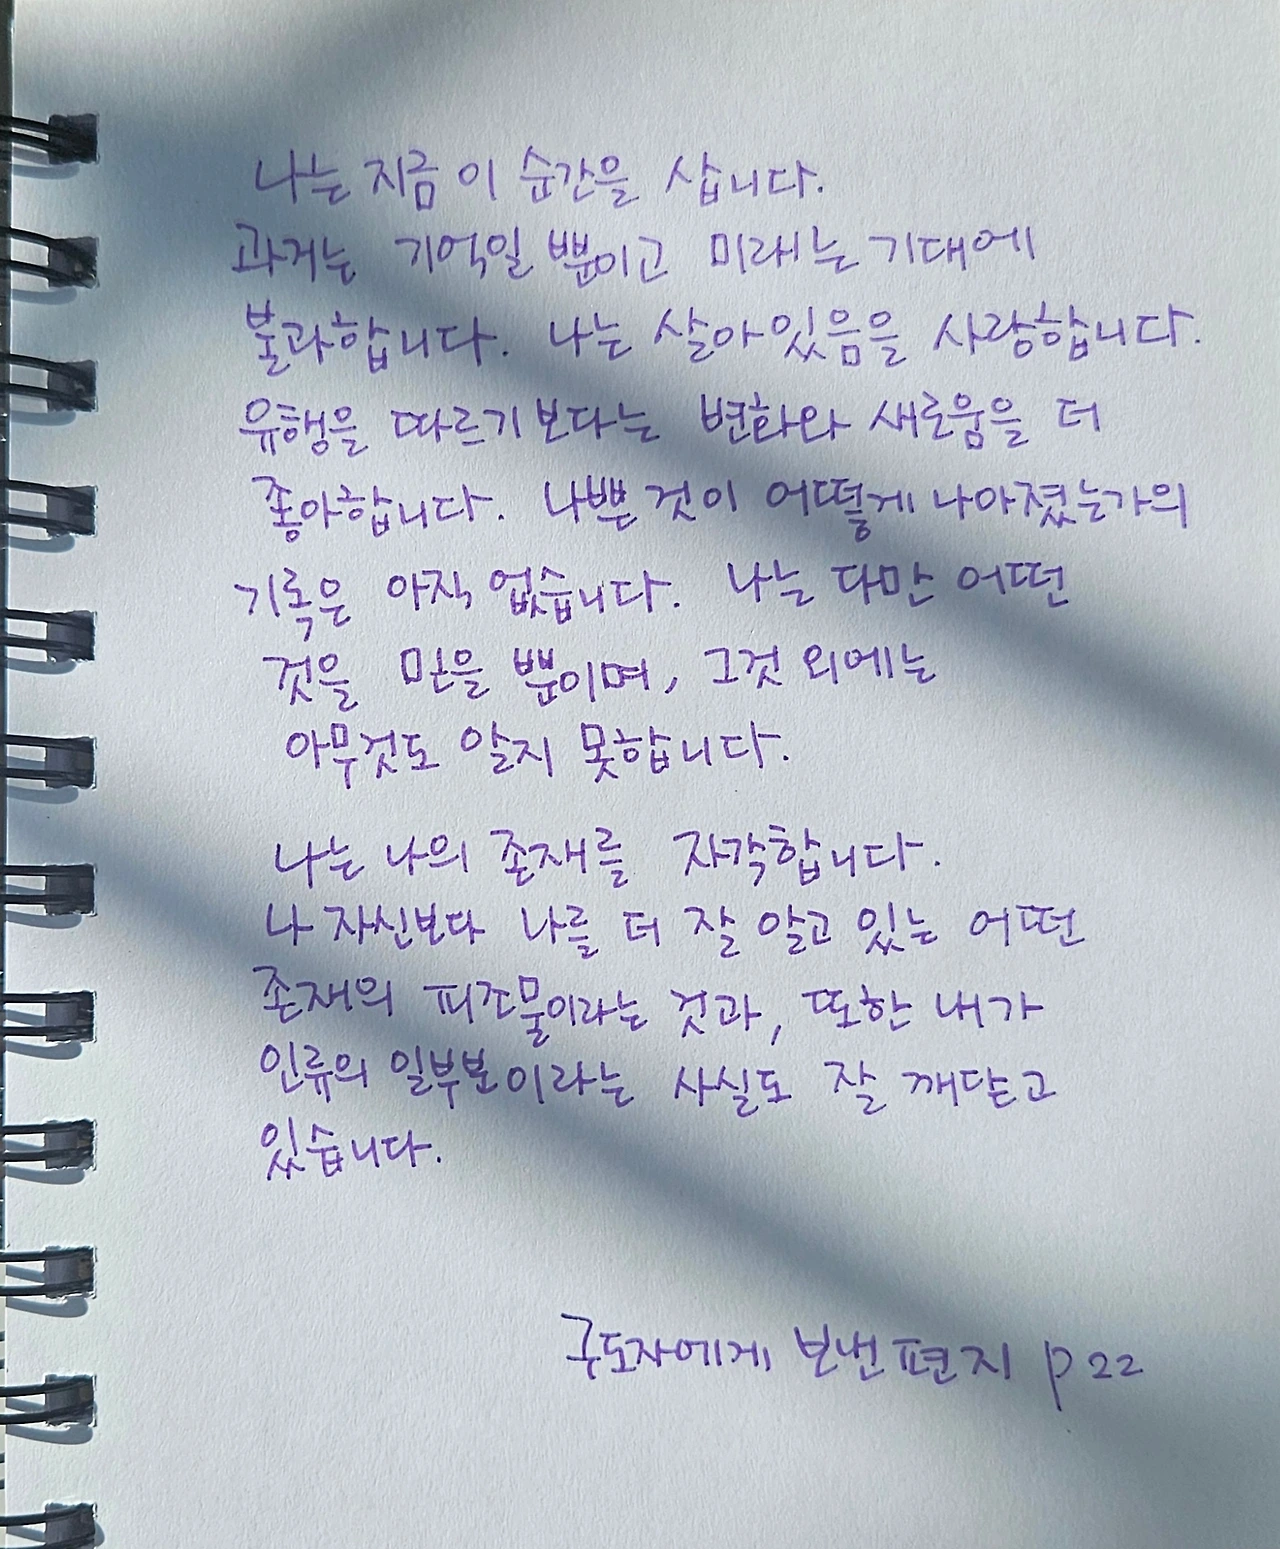 나는 지금 이 순간을 삽니다.
과거는 기억일 뿐이고 미래는 기대에
불과합니다. 나는 살아있음을 사랑합니다.
유행을 따르기보다는 변화와 새로움을 더
좋아합니다. 나쁜 것이 어떻게 나아졌는가의
기록은 아직 없습니다. 나는 다만 어떤
것을 믿을 뿐이며, 그것 외에는
아무것도 알지 못합니다.
나는 나의 존재를 자각합니다.
나 자신보다 나를 더 잘 알고 있는 어떤
존재의 피조물이라는 것과, 또한 내가
인류의 일부분이라는 사실도 잘 깨닫고
있습니다.
구도자에게 보낸 편지 p 22